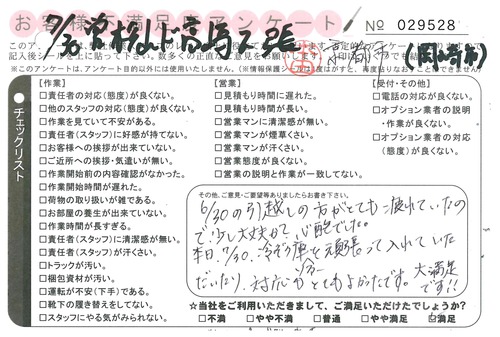 お客様ご満足度アンケート
No 029528
京都市
(岡崎市)
チェックリスト
【作業】
□責任者の対応(態度)が良くない。
□他のスタッフの対応(態度)が良くない。
□作業を見ていて不安がある。
□責任者(スタッフ)に好感が持てない。
□お客様への挨拶が出来ていない。
□ご近所への挨拶・気遣いが無い。
□作業開始前の内容確認がなかった。
□作業開始時間が遅れた。
□荷物の取り扱いが雑である。
□お部屋の養生が出来ていない。
□作業時間が長すぎる。
□責任者(スタッフ)に清潔感が無い。
□責任者(スタッフ)が汗くさい。
□トラックが汚い。
□梱包資材が汚い。
□運転が不安(下手)である。
□靴下の履き替えをしてない。
□スタッフにやる気がみられない。
【営業】
□営業時間に遅れた。
□見積もり時間が長い。
□営業マンに清潔感が無い。
□営業マンが煙草くさい。
□営業マンが汗くさい。
□営業態度が良くない。
□営業の説明と作業が一致してない。
【受付・その他】
□電話の対応が良くない。
□オプション業者の説明
・作業が良くない。
□オプション業者の対応
(態度)が良くない。
その他、ご意見・ご要望等ありましたらお書き下さい。
6/30の引越しの方がとても疲れていたの
で少し大丈夫か、心配でした。
本日、7/30、冷ぞう庫を頑張って入れていた
だいたり、対応もとてもよかったです。大満足
です!!
☆当社をご利用いただきまして、ご満足いただけたでしょうか?
□不満 □やや不満 □普通 □やや満足 ☑満足